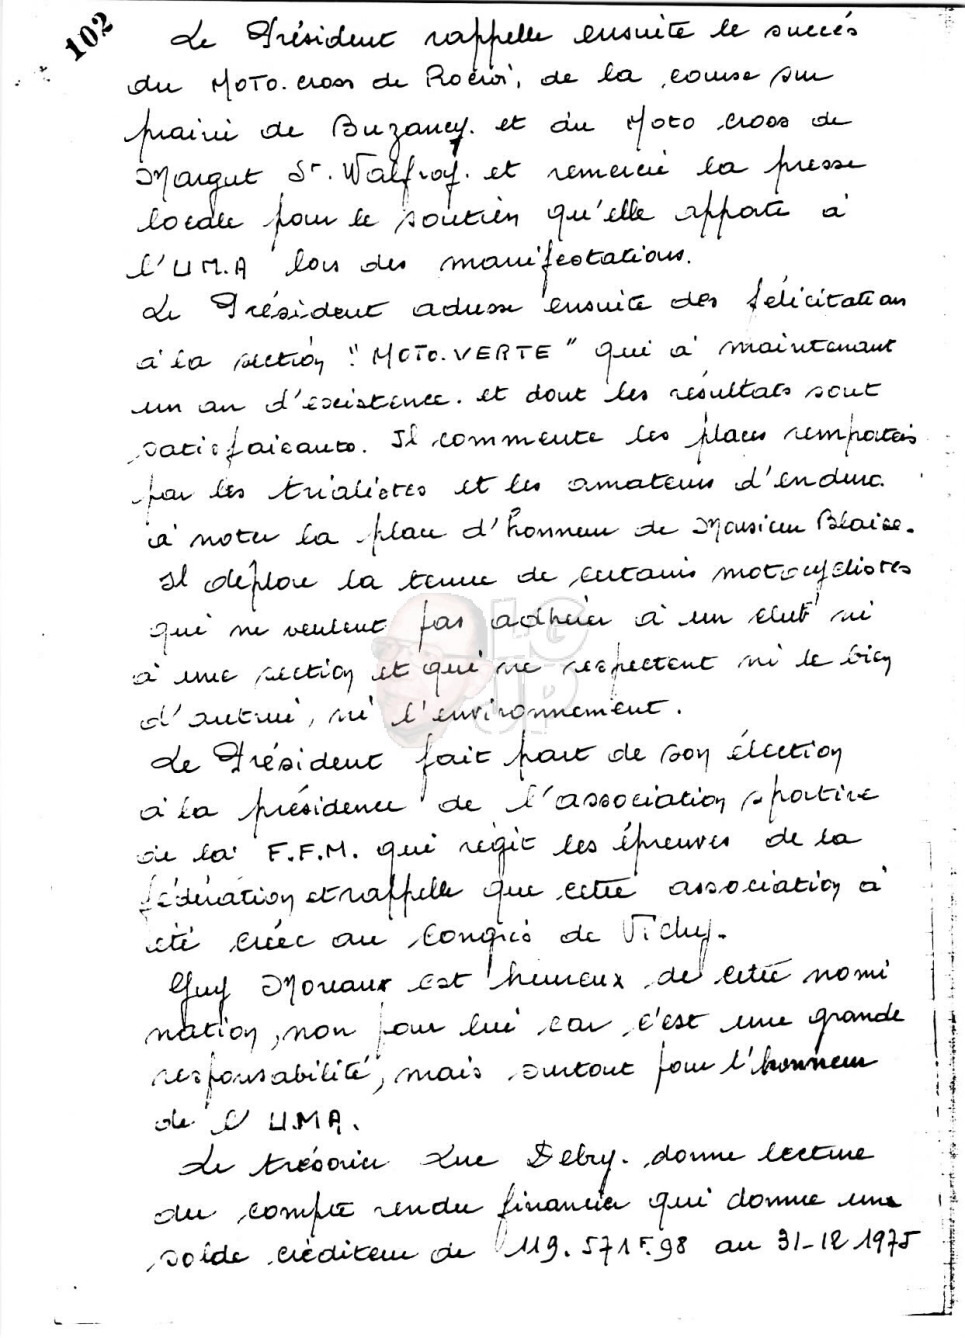 102
Le Président rappelle ensuite le succés
du MOTO.cross de Rocroi, de la course sur
prairie de Buzancy. et du Moto cross de
Margut St. Walfroy. et remercie la presse
locale pour le soutien qu'elle apporte à
l'U.M.A lors des manifestations.
Le Président adresse ensuite des félicitations
à la section "MOTO.VERTE" qui a maintenant
un an d'existence. et dont les résultats sont
satisfaisants. Il commente les places remportées
par les trialistes et les amateurs d'enduro.
à noter la place d'honneur de Monsieur Blaise.
Il déplore la tenue de certains motocyclistes
qui ne veulent pas adhérer à un club ni
à une section et qui ne respectent ni le bien
d'autrui, ni l'environnement.
Le Président fait part de son élection
à la présidence de l'association sportive
de la F.F.M. qui régit les épreuves de la
fédération et rappelle que cette association a
été créée au Congrès de Vichy.
Guy Moreaux est heureux de cette nomi
nation, non pour lui car c'est une grande
responsabilité, mais surtout pour l'honneur
de l'U.M.A.
Le trésorier Luc Debry. donne lecture
du compte rendu financier qui donne une
solde créditeur de 119.571F.98 au 31-12 1975
LG
JP